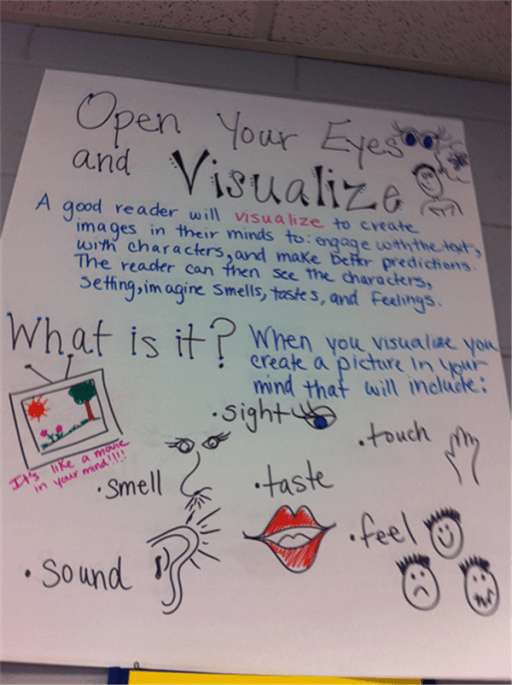 Open Your Eyes
and Visualize
A good reader will visualize to create
images in their minds to: engage with the text,
with characters, and make better predictions.
The reader can then see the characters,
setting, imagine smells, tastes, and feelings.
What is it? When you visualize you
create a picture in your
mind that will include:
It's like a movie
in your mind!!!!
· sight
· touch
· smell
· taste
· feel
· sound